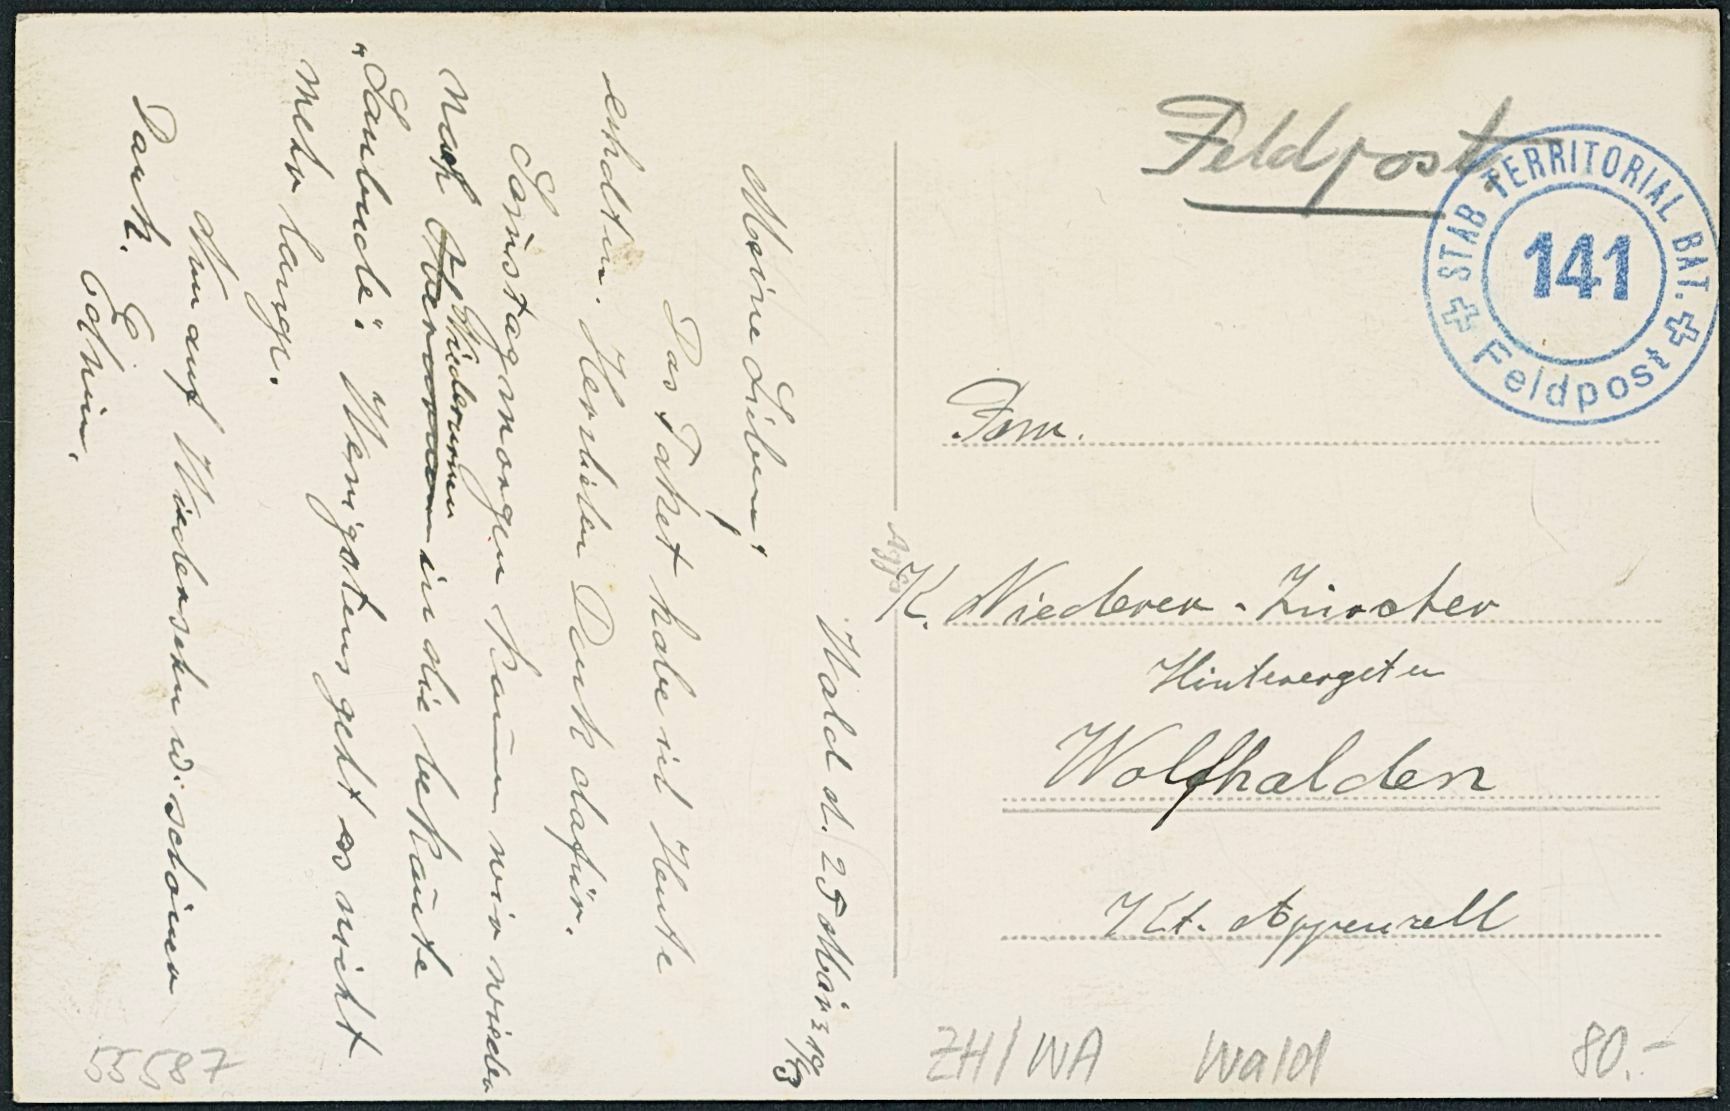 Feldpost.
STAB TERRITORIAL BAT.
141
Feldpost
Fam.
K. Niederer-Zürcher
Hinterergeten
Wolfhalden
Kt. Appenzell
Wald d. 25 März 19/43
Meine Lieben!
Das Paket habe ich Heute
erhalten. Herzlichen Dank dafür.
Samstagmorgen kommen wir wieder
Nach
Niederurnen
in die bekannte
"Saubude". Wenigstens geht es nicht
mehr lange.
Nun auf Wiedersehn u. schönen
Dank. E
Edwin.
ZH/WA Wald 80.-
55587